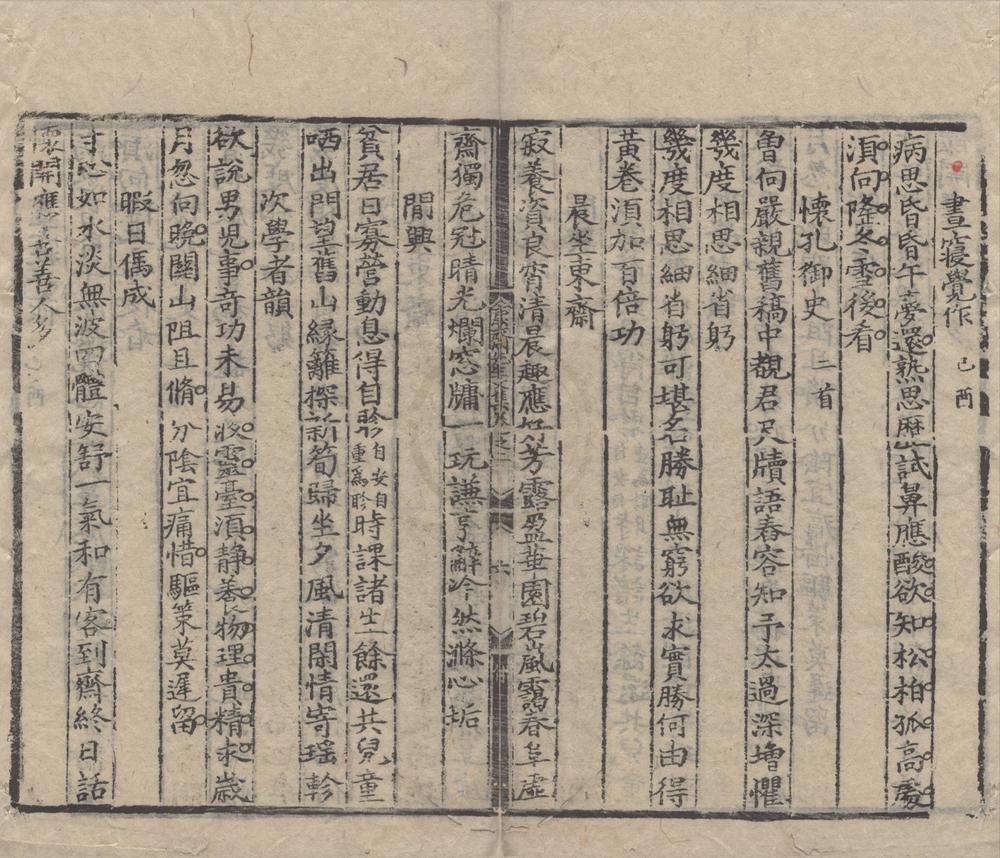 晝寢覺作 己酉
病思昏昏午夢還熟思歷試鼻應酸欲知松柏孤高處
湏向隆冬雪後看
懷孔御史 二首
魯向嚴親舊稿中觀君尺牘語舂容知予太過深增懼
幾度相思細省躬
幾度相思細省躬可堪名勝耻無窮欲求實勝何由得
黃卷湏加百倍功
晨坐東齋
寂養資良宵清晨趣應好芳露盈華園碧嵐靄春阜虛
齋獨危冠晴光爛窓牖一玩謙亨辭冷然滌心垢
閒興
貧居日寡營動息得自聆自安自重爲聆時課諸生餘還共兒童
哂出門望舊山緣籬探新筍歸坐夕風清閑情寄瑶軫
次學者韻
欲說男兒事奇功未易收靈臺湏靜養物理貴精求歲
月忽向晚關山阻且脩分陰宜痛惜驅策莫遲留
暇日偶成
寸心如水淡無波四體安舒一氣和有客到齋終日話
懷開應喜善人多